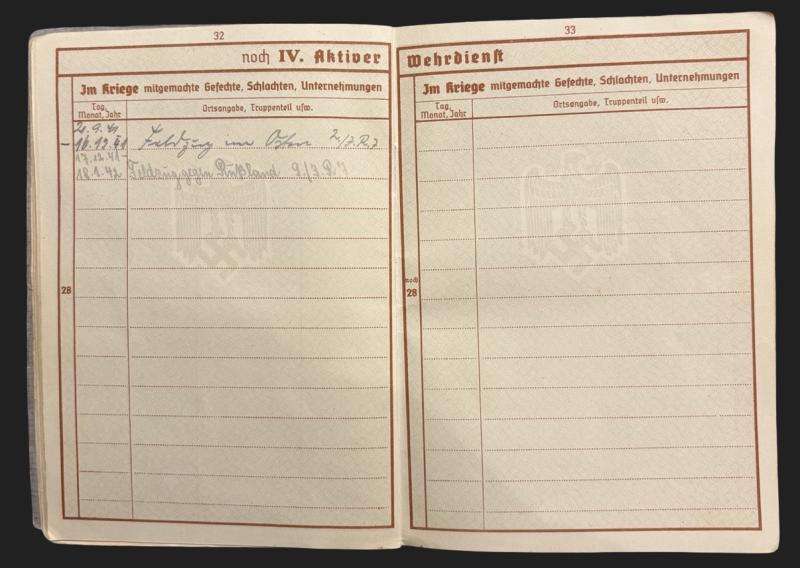 32
noch IV. Aktiver
Im Kriege mitgemachte Gefechte, Schlachten, Unternehmungen
Tag, Monat, Jahr
Ortsangabe, Truppenteil usw.
9.41
– 16.12.41 Feldzug im Osten 2./J.R.7
17.12.41–
18.1.42 Feldzug gegen Rußland 9./J.R.7
28
33
Wehrdienst
Im Kriege mitgemachte Gefechte, Schlachten, Unternehmungen
Tag, Monat, Jahr
Ortsangabe, Truppenteil usw.
noch
28